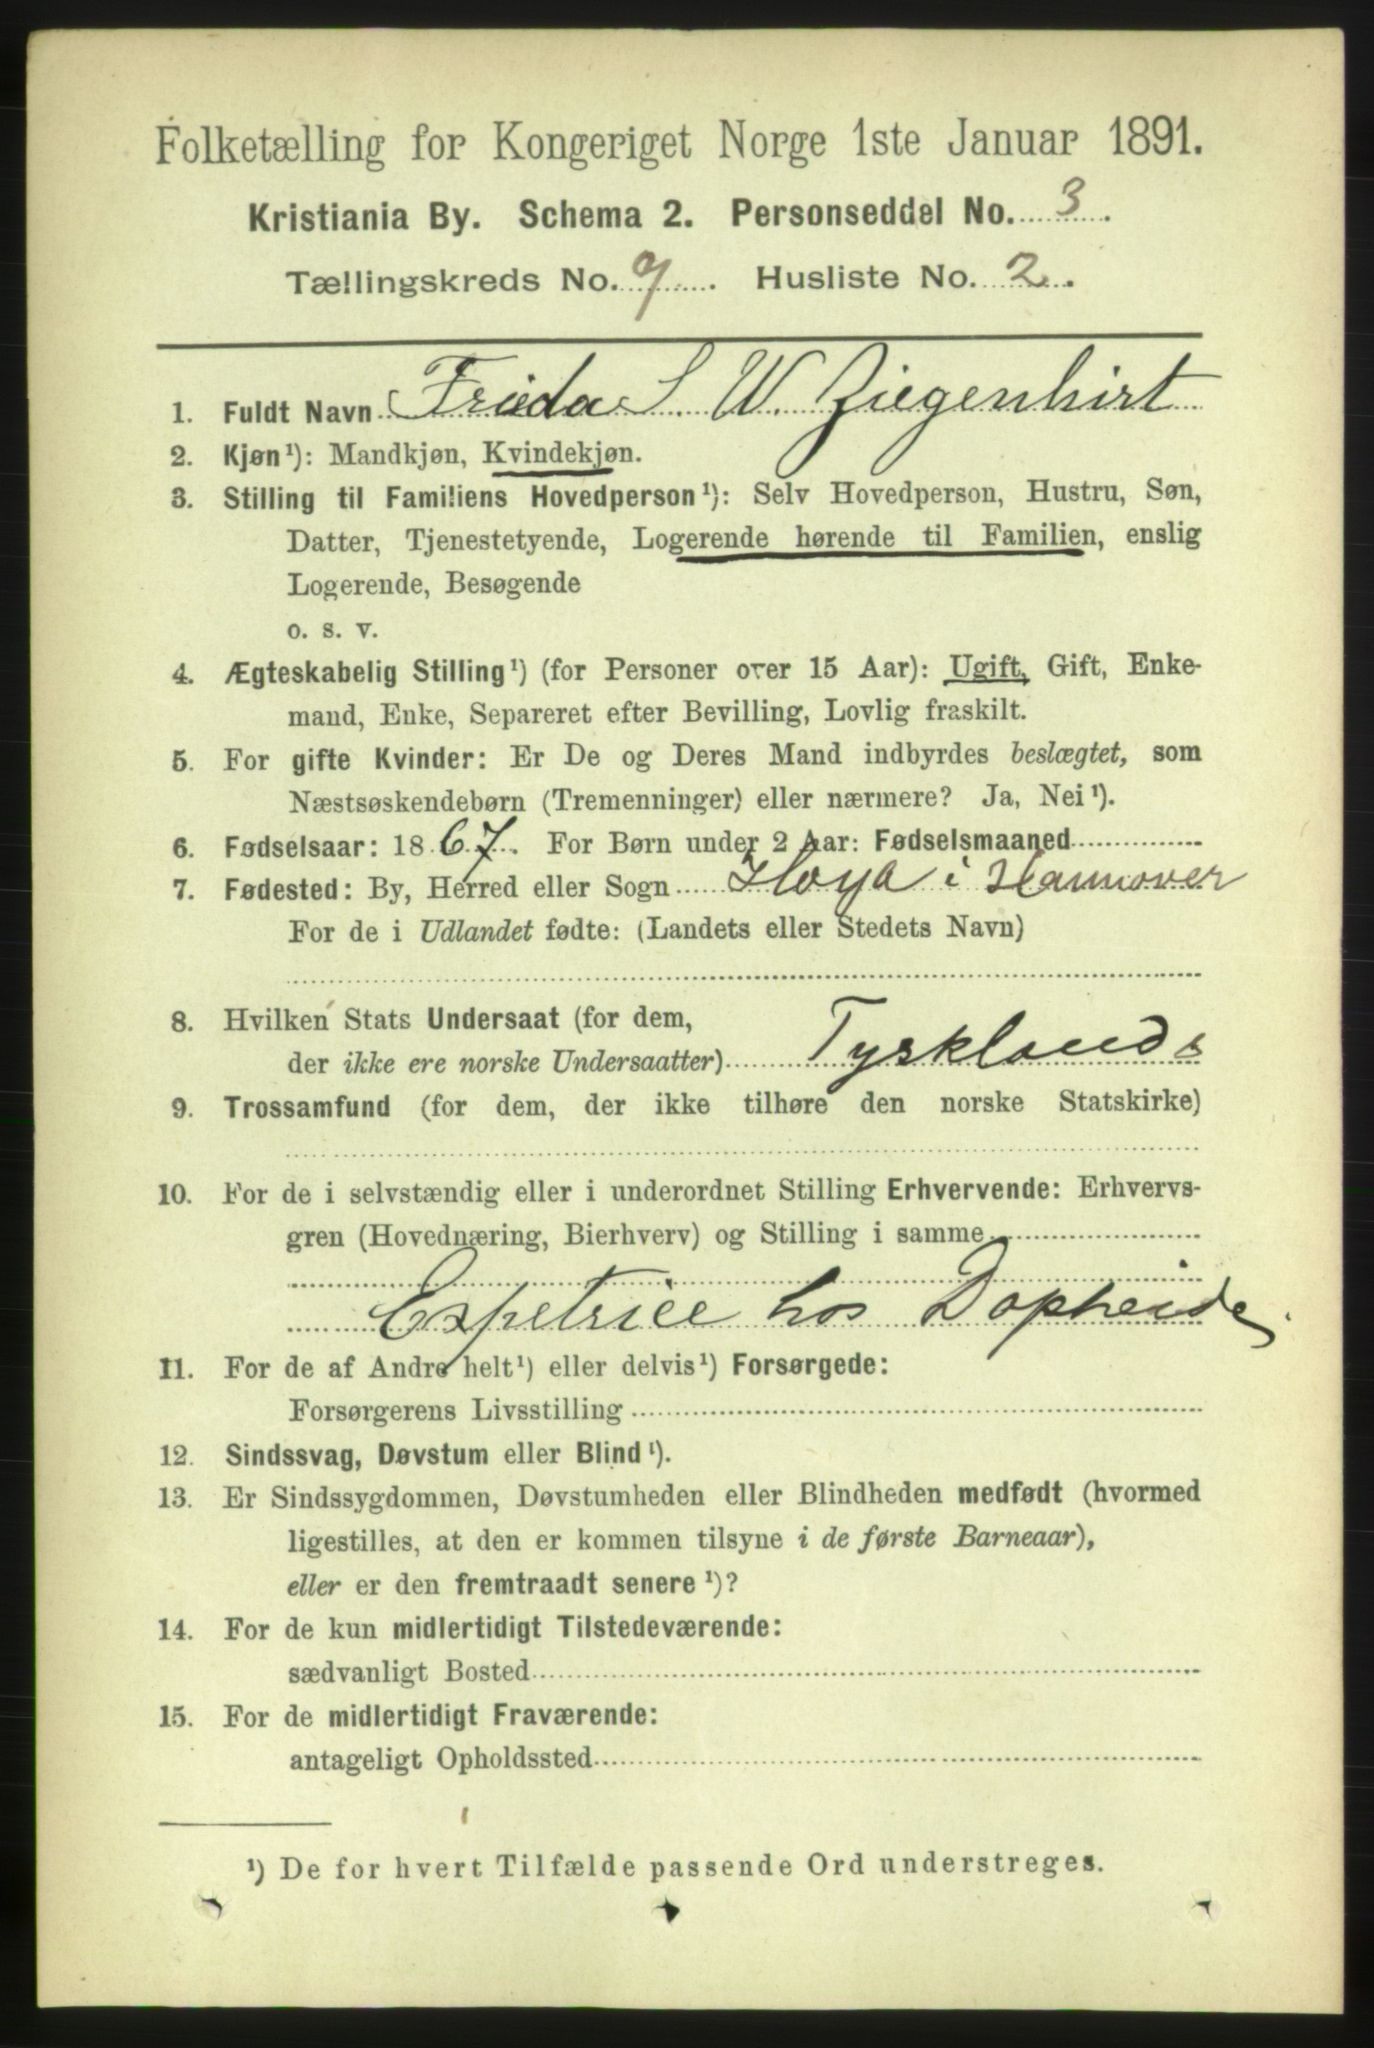 Folketælling for Kongeriget Norge 1ste Januar 1891.
Kristiania By. Schema 2. Personseddel No. 3.
Tællingskreds No. 9. Husliste No. 2.
1. Fuldt Navn Frieda S. W. Ziegenhirt
2. Kjøn¹): Mandkjøn, Kvindekjøn.
3. Stilling til Familiens Hovedperson¹): Selv Hovedperson, Hustru, Søn,
Datter, Tjenestetyende, Logerende hørende til Familien, enslig
Logerende, Besøgende
o. s. v.
4. Ægteskabelig Stilling¹) (for Personer over 15 Aar): Ugift, Gift, Enke-
mand, Enke, Separeret efter Bevilling, Lovlig fraskilt.
5. For gifte Kvinder: Er De og Deres Mand indbyrdes beslægtet, som
Næstsøskendebørn (Tremenninger) eller nærmere? Ja, Nei¹).
6. Fødselsaar: 1867. For Børn under 2 Aar: Fødselsmaaned
7. Fødested: By, Herred eller Sogn Hoya i Hannover
For de i Udlandet fødte: (Landets eller Stedets Navn)
8. Hvilken Stats Undersaat (for dem,
der ikke ere norske Undersaatter) Tysklands
9. Trossamfund (for dem, der ikke tilhøre den norske Statskirke)
10. For de i selvstændig eller i underordnet Stilling Erhvervende: Erhvervs-
gren (Hovednæring, Bierhverv) og Stilling i samme
Expetrice hos Dopheide
11. For de af Andre helt¹) eller delvis¹) Forsørgede:
Forsørgerens Livsstilling
12. Sindssvag, Døvstum eller Blind¹).
13. Er Sindssygdommen, Døvstumheden eller Blindheden medfødt (hvormed
ligestilles, at den er kommen tilsyne i de første Barneaar),
eller er den fremtraadt senere¹)?
14. For de kun midlertidigt Tilstedeværende:
sædvanligt Bosted
15. For de midlertidigt Fraværende:
antageligt Opholdssted
¹) De for hvert Tilfælde passende Ord understreges.